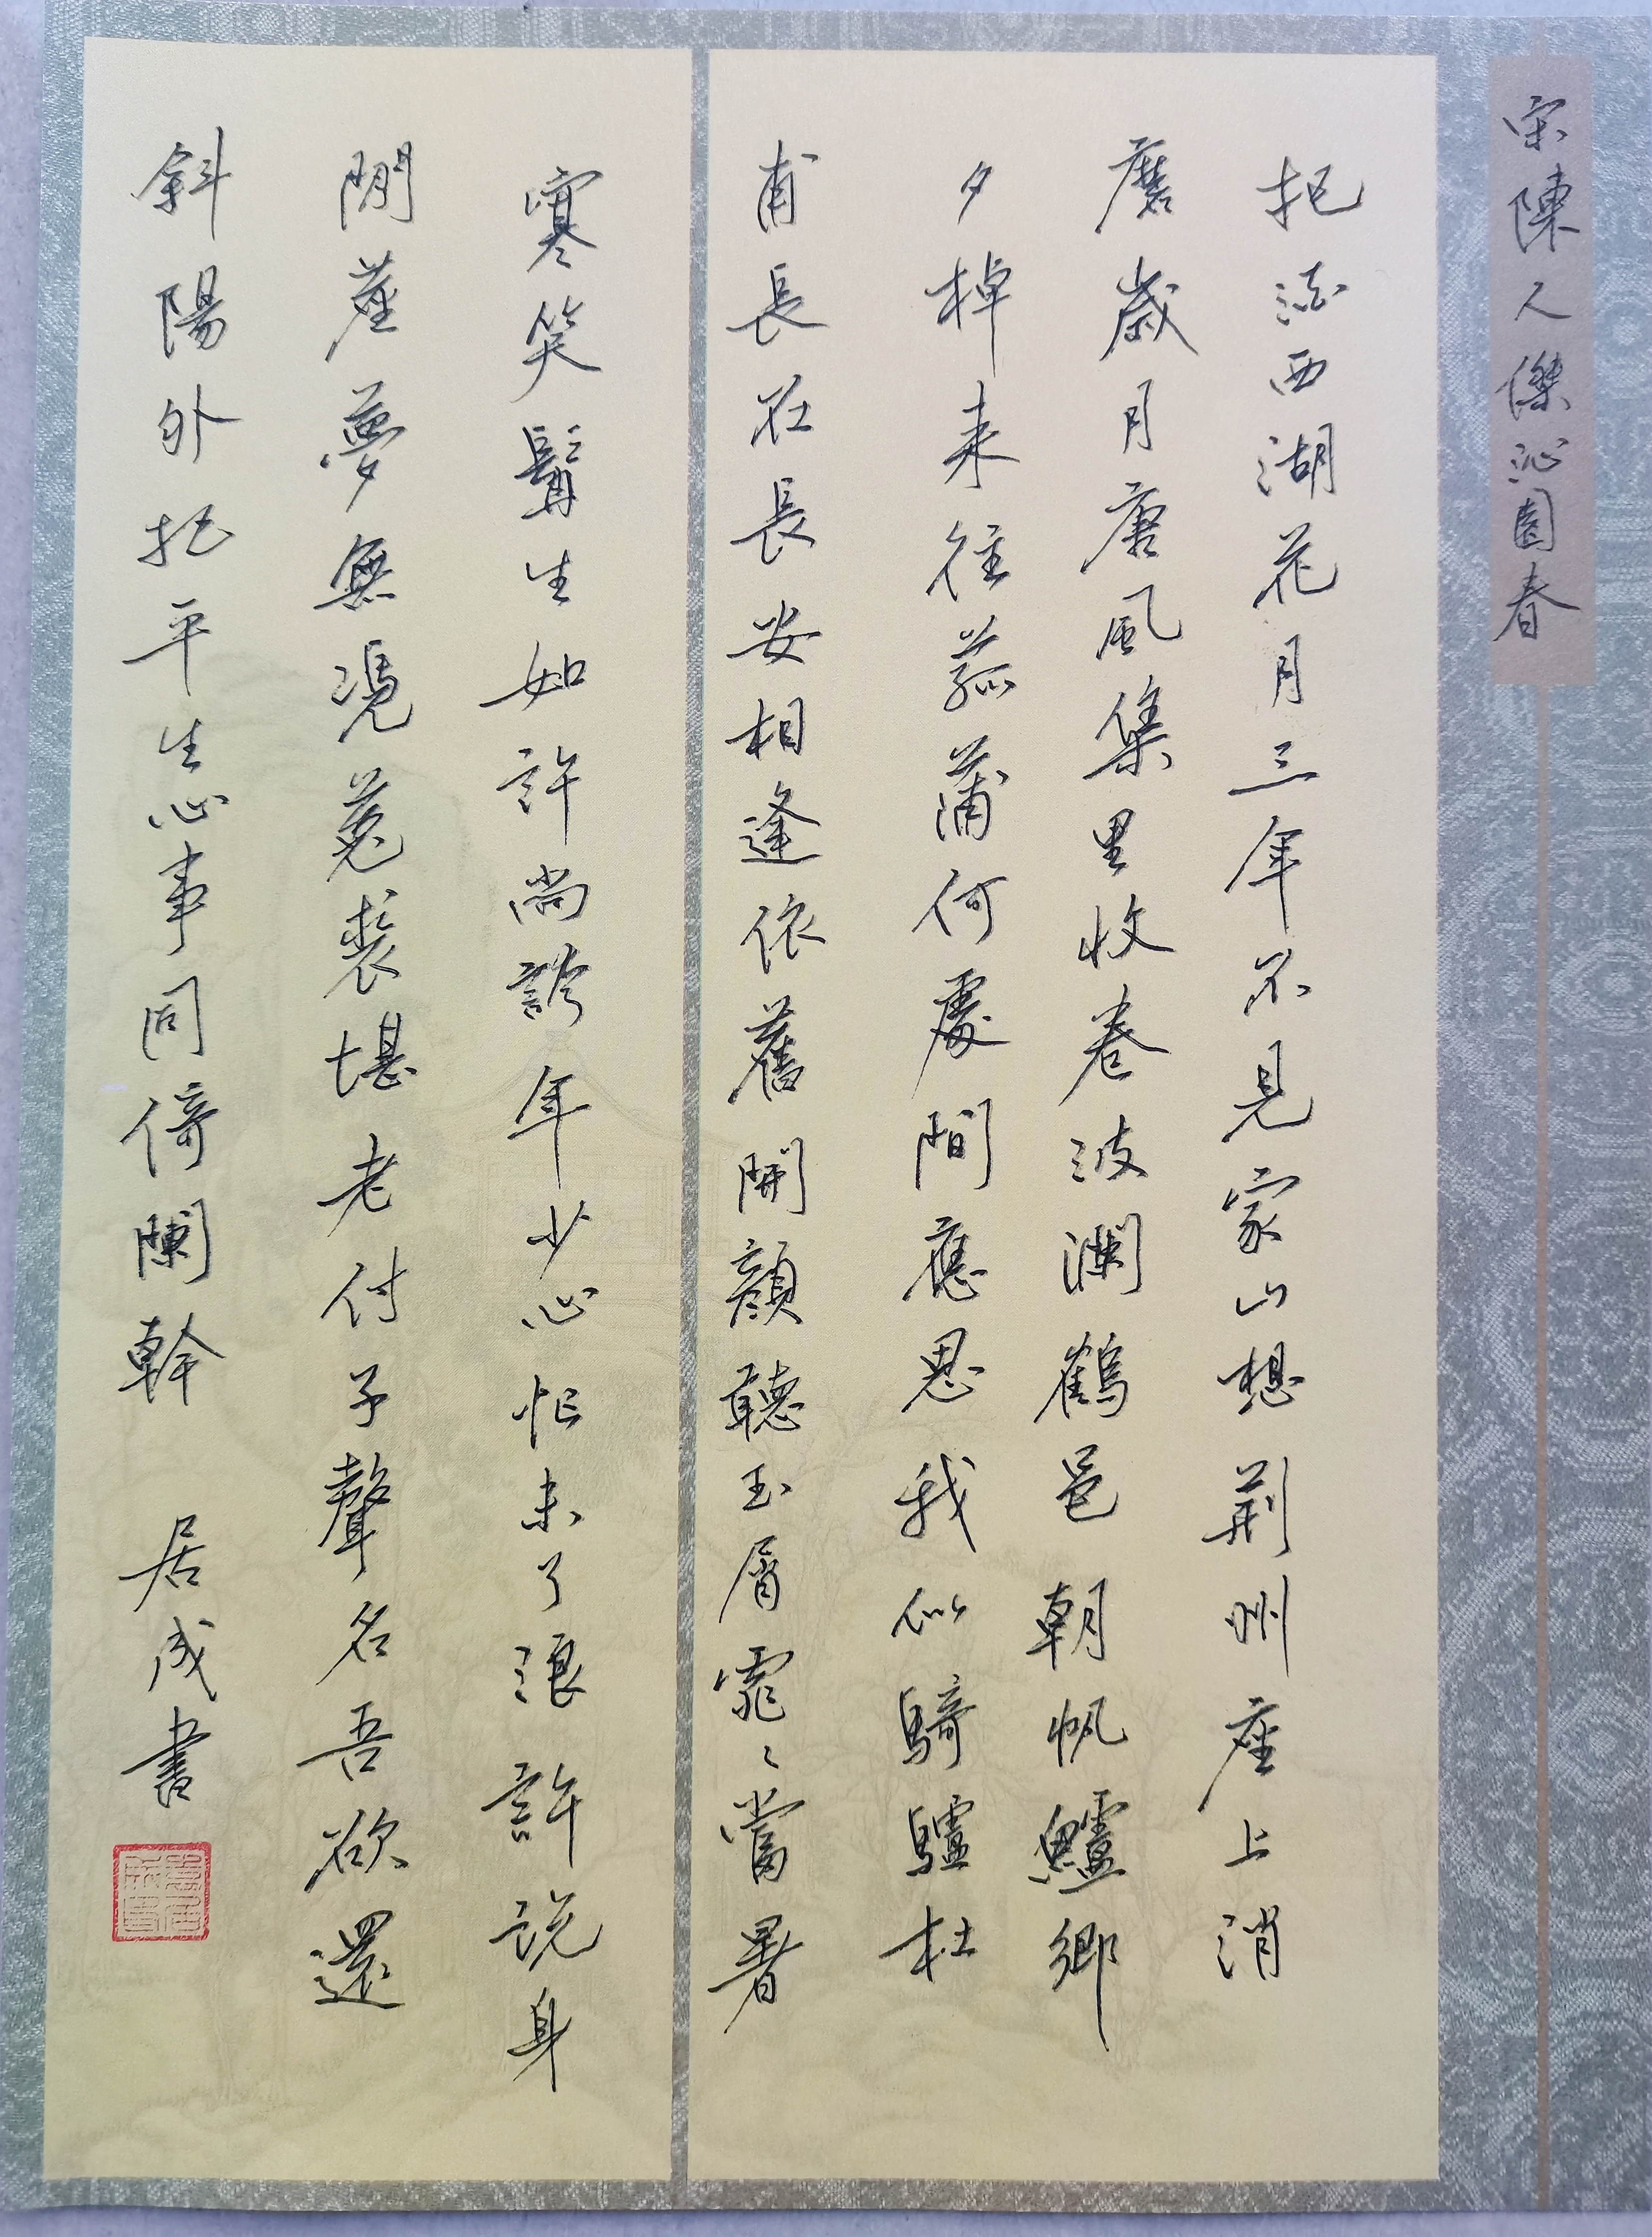 宋陳人傑沁園春
把酒西湖花月三年不見家山想荆州座上消
磨歲月唐風集里收卷波瀾鶴邑朝帆鱸鄉
夕棹来往菰蒲何處間應思我似騎驢杜
甫長在長安相逢依舊開顔聽玉屑霏〻當暑
寒笑鬢生如許尚誇年少心怀未了浪許説身
閒蕉夢無凴菟裘堪老付予聲名吾欲還
斜陽外把平生心事同倚闌幹 居成書